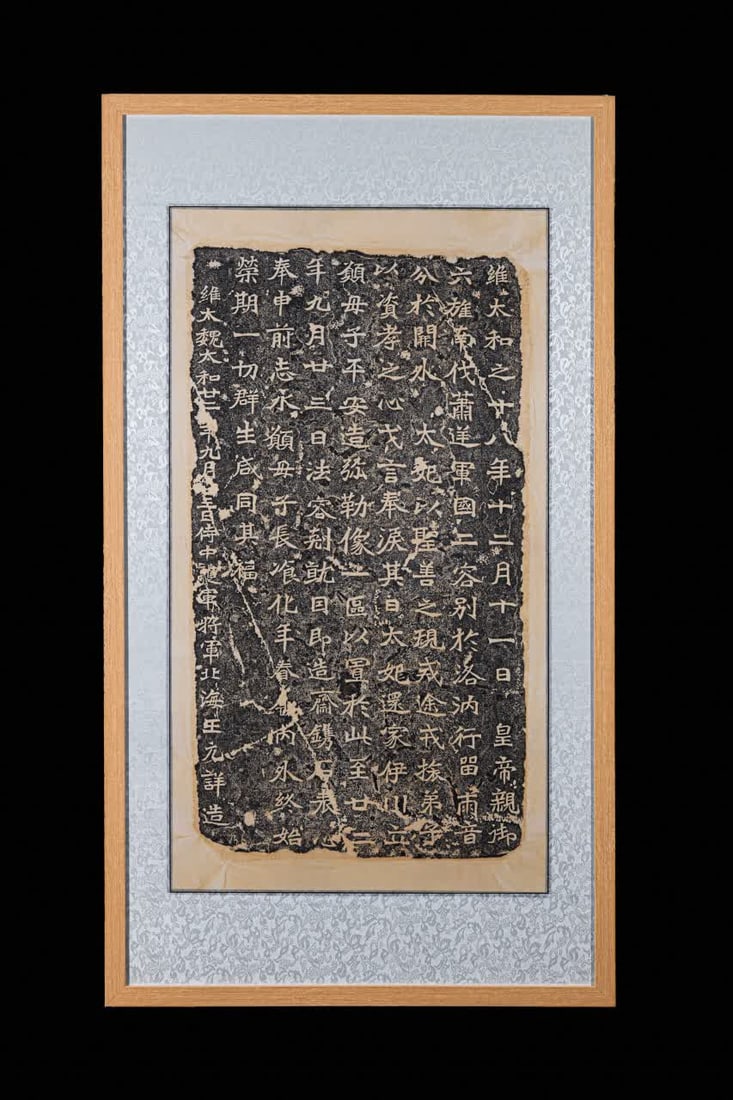 維太和之十八年十二月十一日 皇帝親御
六旌南伐蕭逆軍國二容別於洛汭行留兩音
分於闕水 太妃以聖善之規戒途戒旅弟子
以資孝之心戈言奉淚其日太妃還家伊川立
願母子平安造弥勒像一區以置於此至廿二
年九月廿三日法容剋就因即造齋鐫石表心
奉申前志永願母子長飡化年眷內外終始
榮期一切群生咸同其福
維太魏太和廿二年九月廿三日侍中護軍將軍北海王元詳造